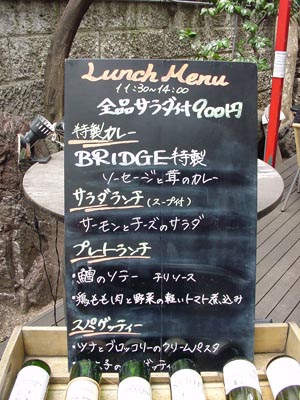 Lunch Menu
11:30~14:00
全品サラダ付900円
特製カレー
BRIDGE特製
ソーセージと茸のカレー
サラダランチ(スープ付)
サーモンとチーズのサラダ
プレートランチ
・鱈のソテー チリソース
・鶏もも肉と野菜の軽いトマト煮込み
スパゲッティー
・ツナとブロッコリーのクリームパスタ